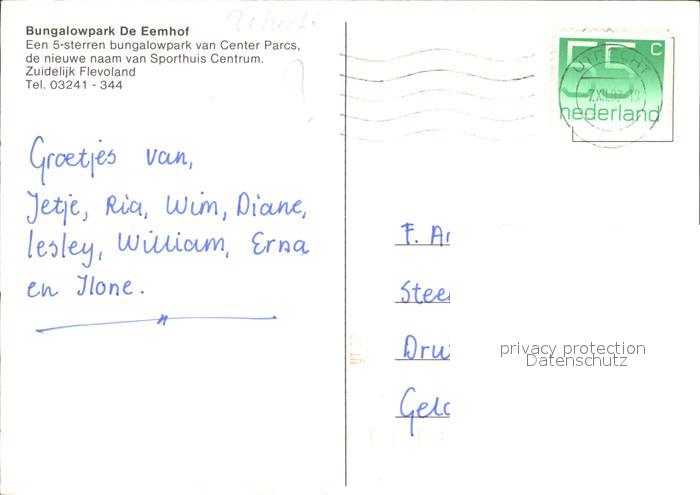 Bungalowpark De Eemhof
Een 5-sterren bungalowpark van Center Parcs,
de nieuwe naam van Sporthuis Centrum.
Zuidelijk Flevoland
Tel. 03241 - 344
55 c
nederland
UTRECHT
Groetjes van,
Jetje, Ria, Wim, Diane,
lesley, William, Erna
en Ilone.
F. Ar
Stee
Dru
Geld
privacy protection
Datenschutz